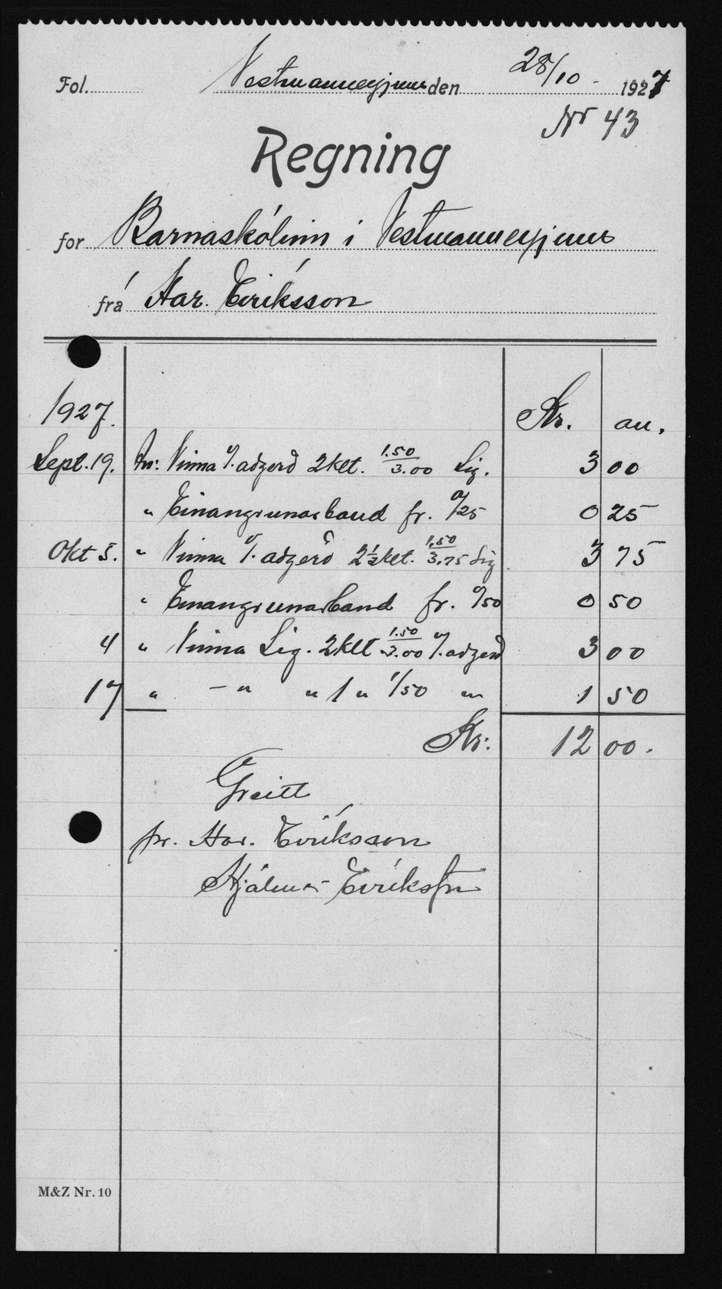 Fol. Vestmannaeyjum den 28/10 - 1927
Nr 43
Regning
for Barnaskólinn í Vestmannaeyjum
frá Har. Eiríksson
1927. Kr. au.
Sept. 19. An: Vinna v/. adgerd 2 klt. 1.50/3.00 Sig. 3 00
" Einangrunarband fr. 0/25 0 25
Okt 5. " Vinna v/. adgerd 2½ klt. 1.50/3.75 Sig 3 75
" Einangrunarband fr. 0/50 0 50
4 " Vinna Sig. 2 klt 1.50/3.00 v/. adgerd 3 00
17 " - " " 1 " 1/50 " 1 50
Kr: 12 00.
Greitt
pr. Har. Eiríksson
Hjálmar Eiríksson
M&Z Nr. 10